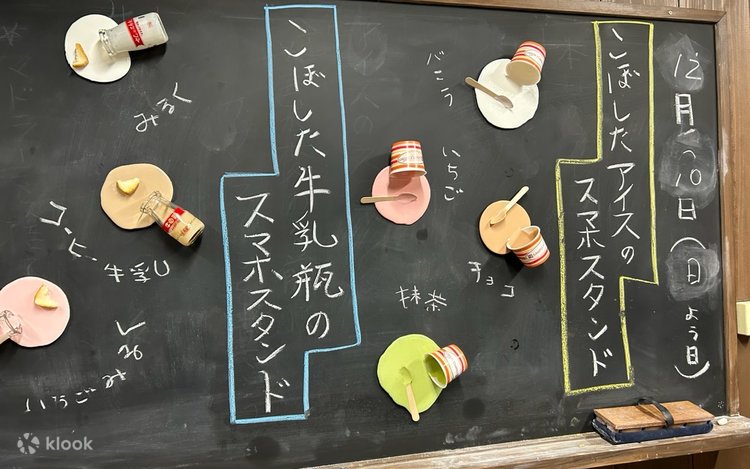 12月10日(日よう日)
こぼしたアイスの
スマホスタンド
バニラ
いちご
チョコ
抹茶
こぼした牛乳瓶の
スマホスタンド
みるく
コーヒー牛乳
いちごみるく
klook